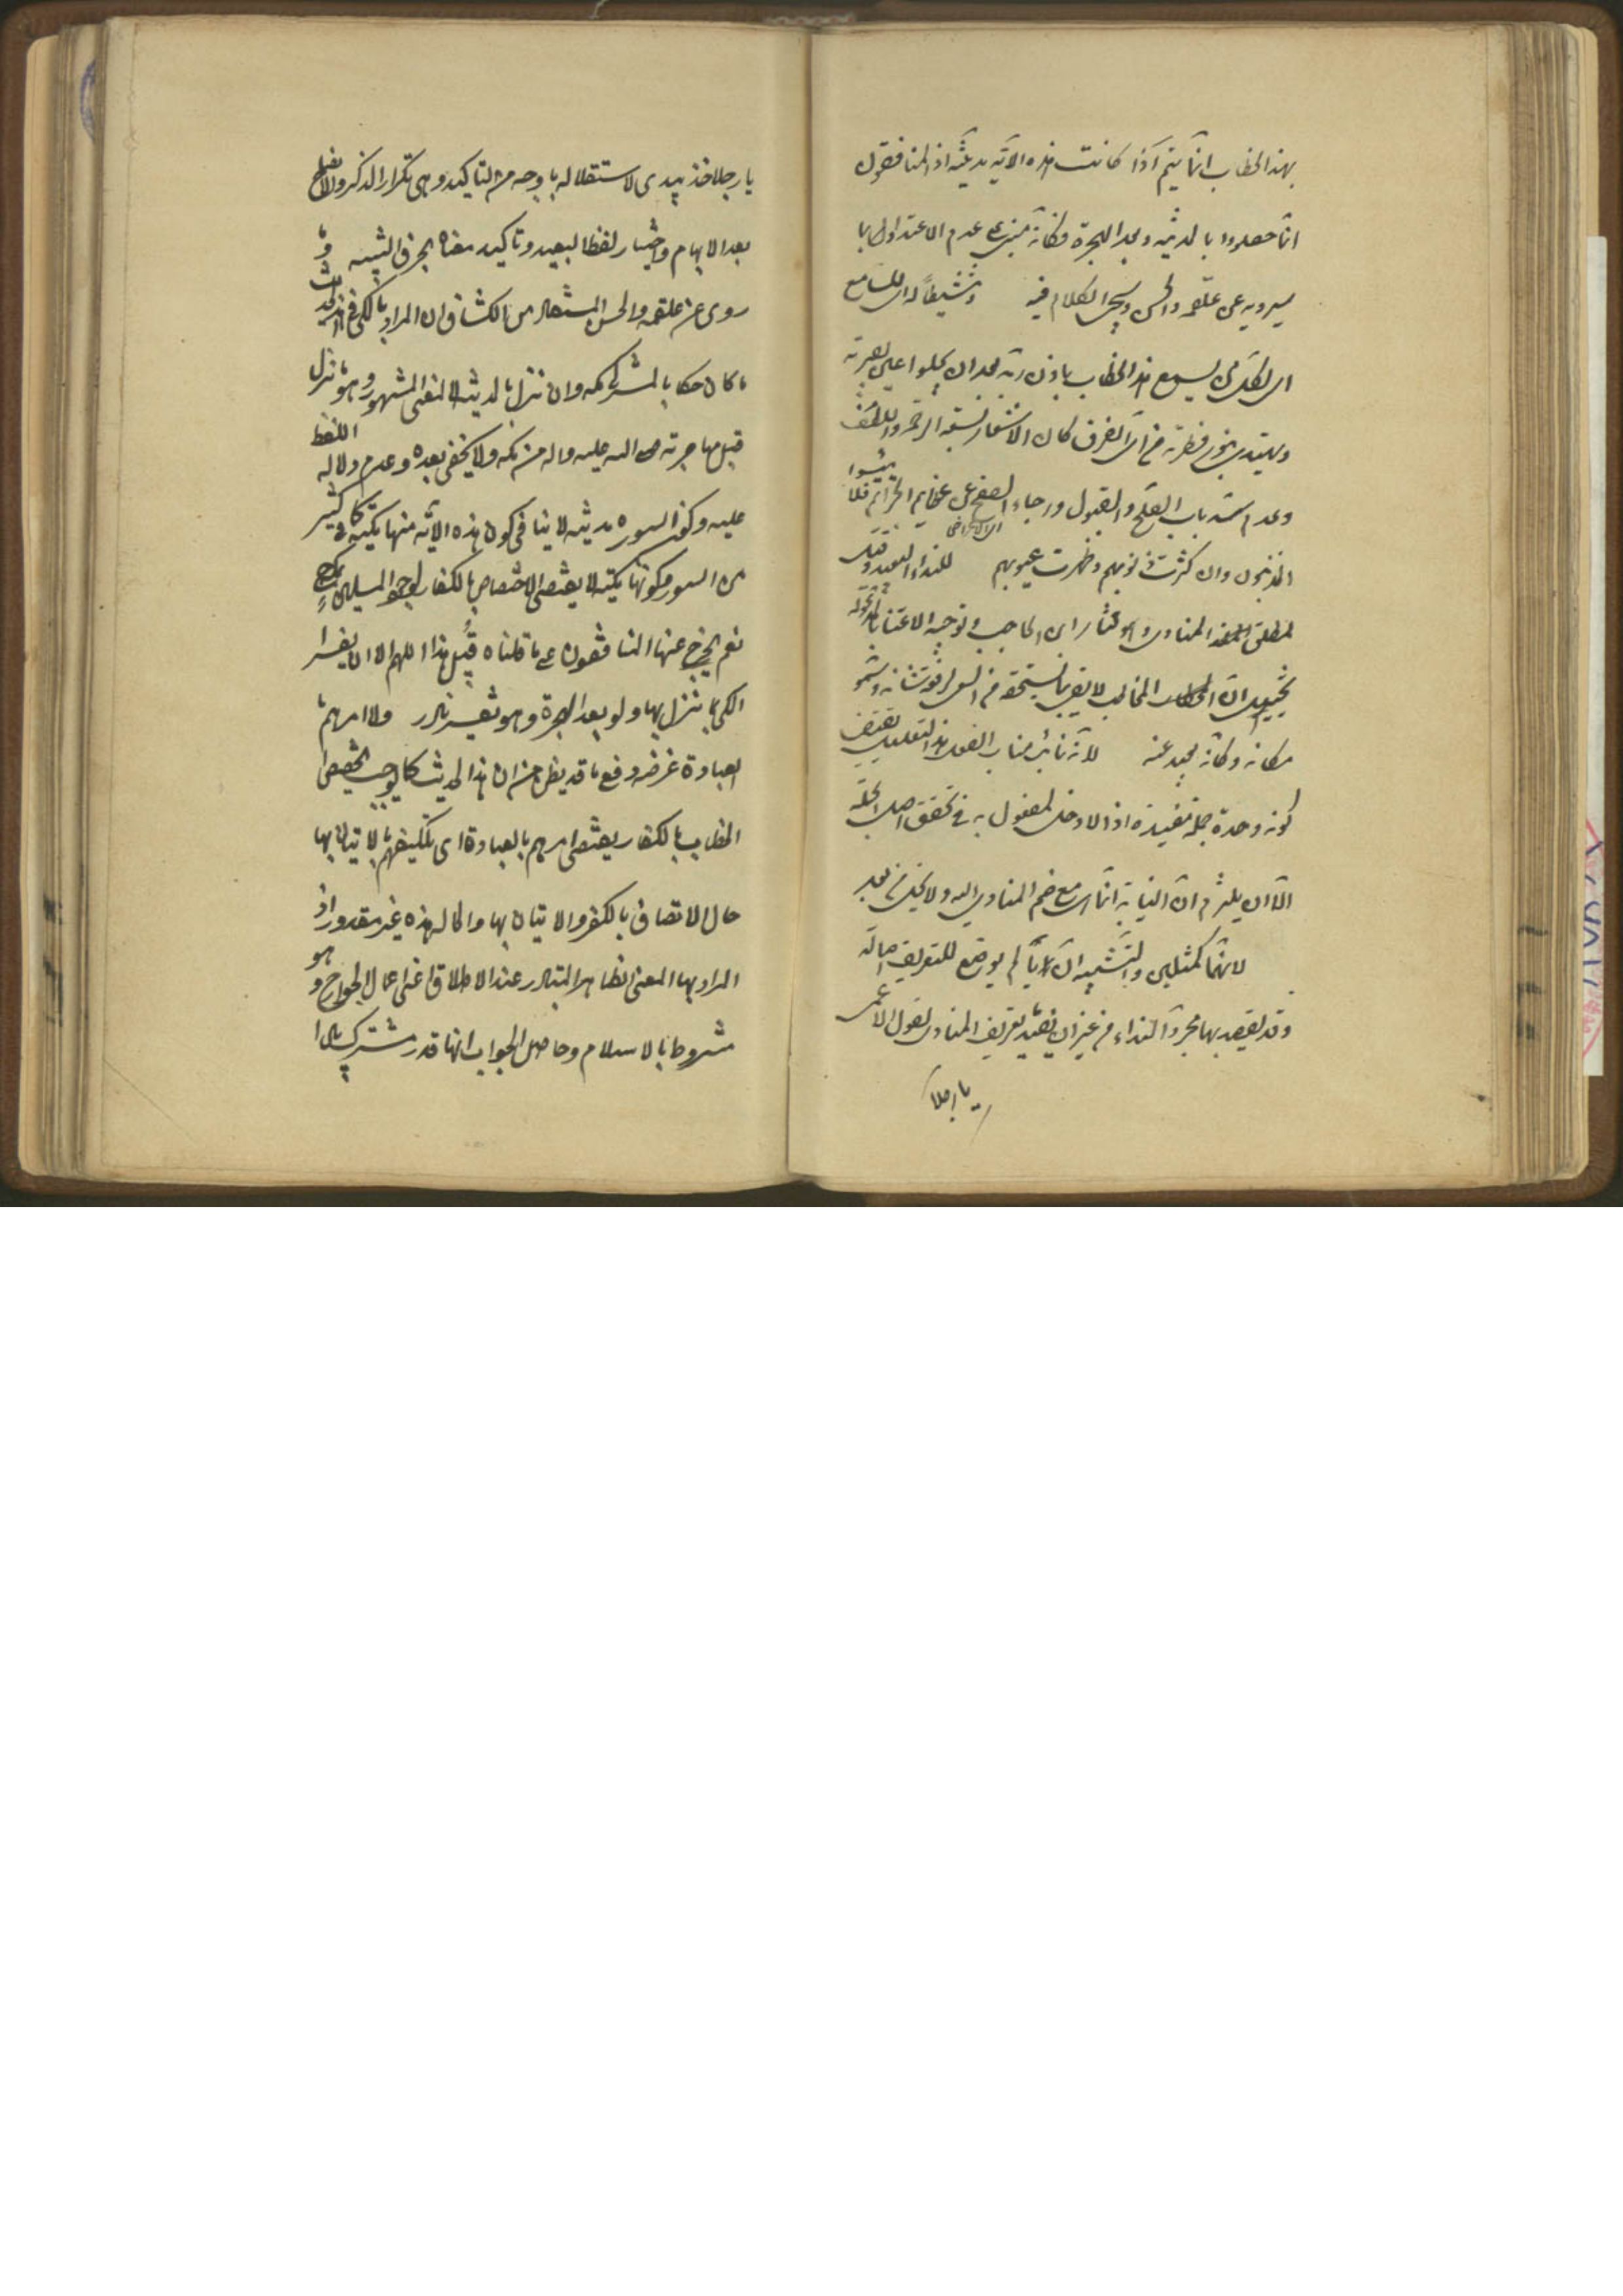 بهذا الخطاب انما يتم اذا كانت هذه الآية مدنية اذ المنافقون
انما حصلوا بالمدينة وبعد الهجرة وكأنه مبنى على عدم الاعتداد بما
سيرويه عن علقمة والحسن وسيجئ الكلام فيه وتنشيطا له اى للسامع
اى لكل من يسمع هذا الخطاب باذن بعد ان يحلوا عين بصيرته
ويهتدى بنور فطرته كان الاشعار بسعة الرحمة واللطف
وعدم سد باب الصلح والقبول ورجاء الصفح عن عظايم الجرائم فلا ييئسوا
المذنبون وان كثرت ذنوبهم وظهرت عيوبهم لنداء البعيد وقيل
لمطلق المنادى واختار ابن الحاجب
المخاطب لا يفى بما يستحقه من السعى لرفعة شانه وسمو
مكانه وكأنه بعيد عنه لأنه نائب مناب الفعل هذا التعليل يقتضى
كونه وحده جملة مفيدة اذ لا دخل لمفعول به فى تحقق اصل الجملة
الا ان يلتزم ان النيابة انما هى مع ضم المنادى اليه ولا يخلو من بعد
لانهما كمثلين والتشبيه ان يا لم يوضع للتعريف اصالة
وقد يقصد بها مجرد النداء من غير ان يقصد تعريف المنادى كقول الاعمى
يا رجلا
يا رجلا خذ بيدى لاستقلاله باوجه من التاكيد وهى تكرار الذكر والايضاح
بعد الابهام واختيار لفظ البعيد وتاكيد معناه بحرف التنبيه وما
روى عن علقمة والحسن المستفاد من الكشاف ان المراد بالمكى فى هذا الحديث
ما كان خطابا لمشركى مكة وان نزل بالمدينة لا المعنى المشهور وهو ما نزل
قبل مهاجرته صلى الله عليه واله من مكة ولا يخفى بعده وعدم دلالة اللفظ
عليه وكون السورة مدنية لا ينافى كون هذه الآية منها مكية كما فى كثير
من السور وكونها مكية لا يقتضى الاختصاص بالكفار لوجود المسلمين بمكة ح
نعم يخرج عنها المنافقون على ما قلناه قبيل هذا اللهم الا ان يفسر
المكى بما نزل بها ولو بعد الهجرة وهو تفسير نادر ولا امرهم
بالعبادة غرضه دفع ما قد يظن من ان هذا الحديث كما يوجب تخصيص
الخطاب بالكفار يقتضى امرهم بالعبادة اى تكليفهم بالاتيان بها
حال الاتصاف بالكفر والاتيان بها والحال هذه غير مقدور اذ
المراد بها المعنى الظاهر المتبادر عند الاطلاق اعنى اعمال الجوارح وهو
مشروط بالاسلام وحاصل الجواب انها قدر مشترك بين